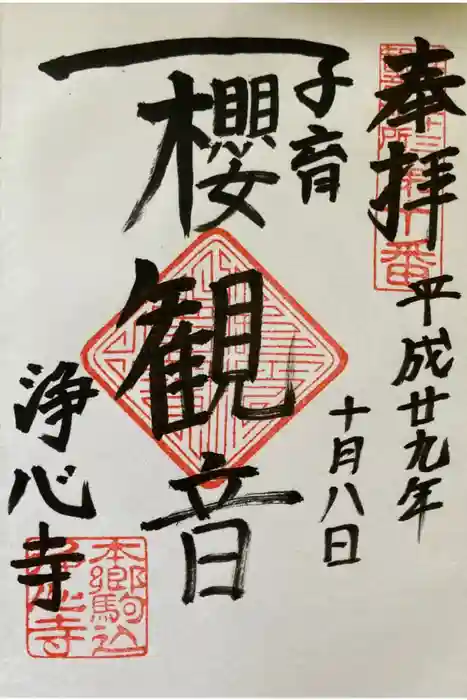 奉拝
平成廿九年
十月八日
子育
櫻観音
浄心寺
本郷駒込
浄心寺